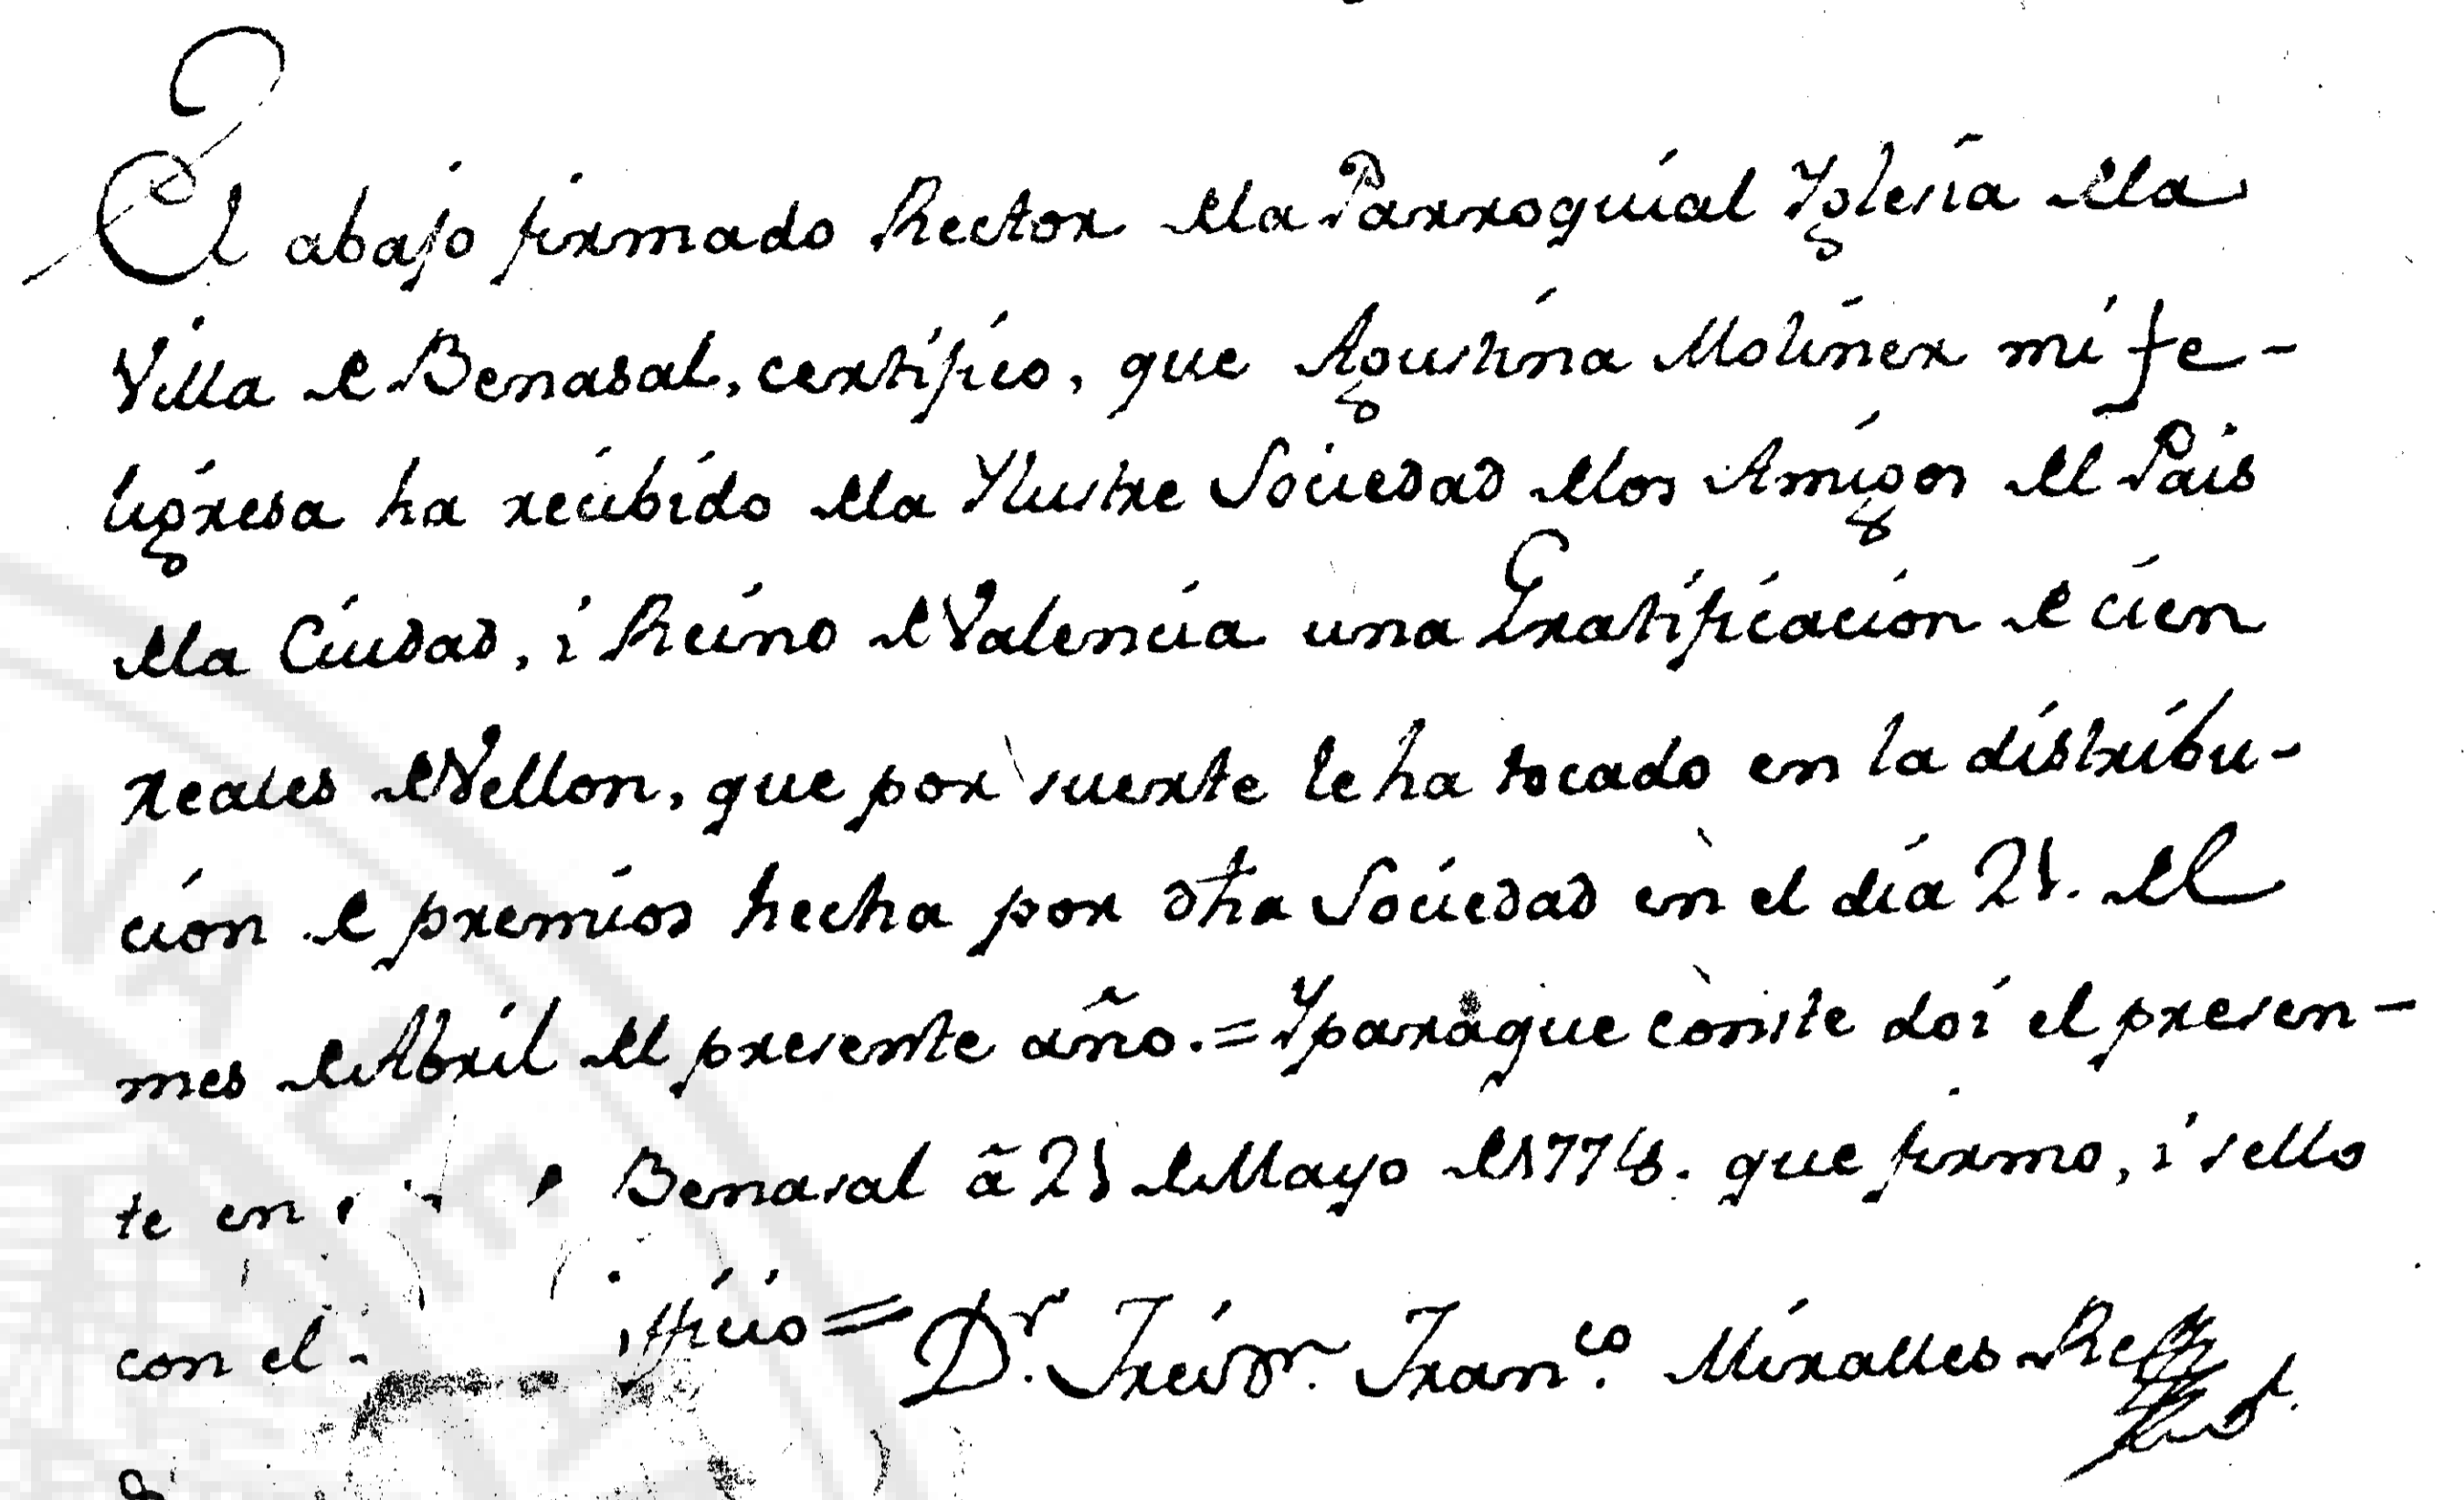 El abajo firmado Rector dela Parroquial Yglesia dela
Villa de Benasal, certifico, que Agustina Moliner mi fe-
ligresa ha recibido dela Ylustre Sociedad delos Amigos del Pais
dela Ciudad, i Reino de Valencia una Gratificacion de cien
reales de Vellon, que por suerte le ha tocado en la distribu-
cion de premios hecha por dha Sociedad en el dia 21. del
mes de Abril del presente año. = Y para que conste doi el presen-
te en Benasal â 21 de Mayo de 1778. que firmo, i sello
con el = Dr. Fran.co Miralles